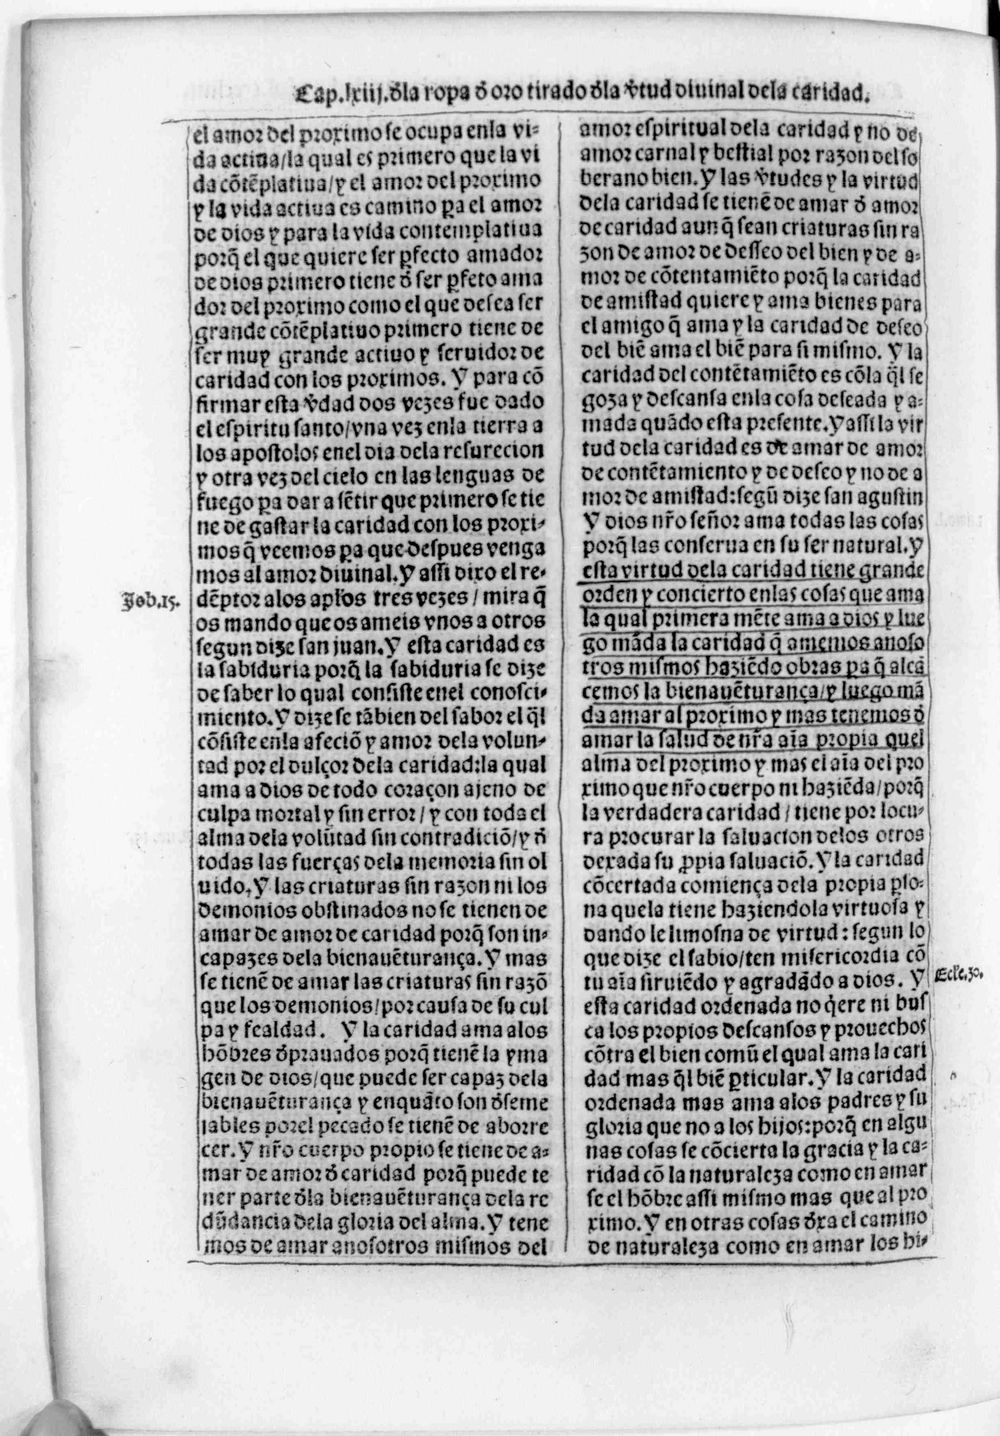 Cap.lxiij.d̄la ropa d̄ oro tirado d̄la v̄tud diuinal dela caridad.
el amor del proximo se ocupa enla vi-
da actiua/la qual es primero que la vi
da cōtēplatiua/y el amor del proximo
y la vida actiua es camino p̱a el amor
de dios y para la vida contemplatiua
porq̄ el que quiere ser p̱fecto amador
de dios primero tiene d̄ ser p̱feto ama
dor del proximo como el que desea ser
grande cōtēplatiuo primero tiene de
ser muy grande actiuo y seruidor de
caridad con los proximos. Y para cō
firmar esta v̄dad dos vezes fue dado
el espiritu santo/vna vez enla tierra a
los apostolos enel dia dela resurecion
y otra vez del cielo en las lenguas de
fuego p̱a dar a sētir que primero se tie
ne de gastar la caridad con los proxi-
mos q̄ veemos p̱a que despues venga
mos al amor diuinal. Y assi dixo el re-
dēptor alos apl̄os tres vezes / mira q̄
Joh.15.
os mando que os ameis vnos a otros
segun dize san juan. Y esta caridad es
la sabiduria porq̄ la sabiduria se dize
de saber lo qual consiste enel conosci-
miento. Y dize se tābien del sabor el q̄l
cōsiste enla afeciō y amor dela volun-
tad por el dulçor dela caridad:la qual
ama a dios de todo coraçon ajeno de
culpa mortal y sin error/y con toda el
alma dela volūtad sin contradiciō/y d̄
todas las fuerças dela memoria sin ol
uido. Y las criaturas sin razon ni los
demonios obstinados no se tienen de
amar de amor de caridad porq̄ son in-
capazes dela bienauēturança. Y mas
se tienē de amar las criaturas sin razō
que los demonios/por causa de su cul
pa y fealdad. Y la caridad ama alos
hōbres d̄prauados porq̄ tienē la yma
gen de dios/que puede ser capaz dela
bienauēturança y enquāto son d̄seme
jables por el pecado se tienē de aborre
cer. Y nr̄o cuerpo propio se tiene de a-
mar de amor d̄ caridad porq̄ puede te
ner parte d̄la bienauēturança dela re
dūdancia dela gloria del alma. Y tene
mos de amar anosotros mismos del
amor espiritual dela caridad y no de
amor carnal y bestial por razon del so
berano bien. Y las v̄tudes y la virtud
dela caridad se tienē de amar d̄ amor
de caridad aun q̄ sean criaturas sin ra
zon de amor de desseo del bien y de a-
mor de cōtentamiēto porq̄ la caridad
de amistad quiere y ama bienes para
el amigo q̄ ama y la caridad de deseo
del biē ama el biē para si mismo. Y la
caridad del contētamiēto es cōla q̄l se
goza y descansa enla cosa deseada y a-
mada quādo esta presente. Y assi la vir
tud dela caridad es de amar de amor
de contētamiento y de deseo y no de a
mor de amistad:segū dize san agustin
Y dios nr̄o señor ama todas las cosas
porq̄ las conserua en su ser natural. Y
esta virtud dela caridad tiene grande
orden y concierto enlas cosas que ama
la qual primera mēte ama a dios y lue
go māda la caridad q̄ amemos anoso
tros mismos haziēdo obras p̱a q̄ alcā
cemos la bienauēturança/y luego mā
da amar al proximo y mas tenemos d̄
amar la salud de nr̄a aīa propia quel
alma del proximo y mas el aīa del pro
ximo que nr̄o cuerpo ni haziēda/porq̄
la verdadera caridad / tiene por locu-
ra procurar la saluacion delos otros
dexada su ꝓpia saluaciō. Y la caridad
cōcertada comiença dela propia p̱so-
na quela tiene haziendola virtuosa y
dando le limosna de virtud: segun lo
que dize el sabio/ten misericordia cō
tu aīa siruiēdo y agradādo a dios. Y
Ecl̄e.30.
esta caridad ordenada no q̄ere ni bus
ca los propios descansos y prouechos
cōtra el bien comū el qual ama la cari
dad mas q̄l biē p̱ticular. Y la caridad
ordenada mas ama alos padres y su
gloria que no a los hijos:porq̄ en algu
nas cosas se cōcierta la gracia y la ca-
ridad cō la naturaleza como en amar
se el hōbre assi mismo mas que al pro
ximo. Y en otras cosas d̄xa el camino
de naturaleza como en amar los hi-